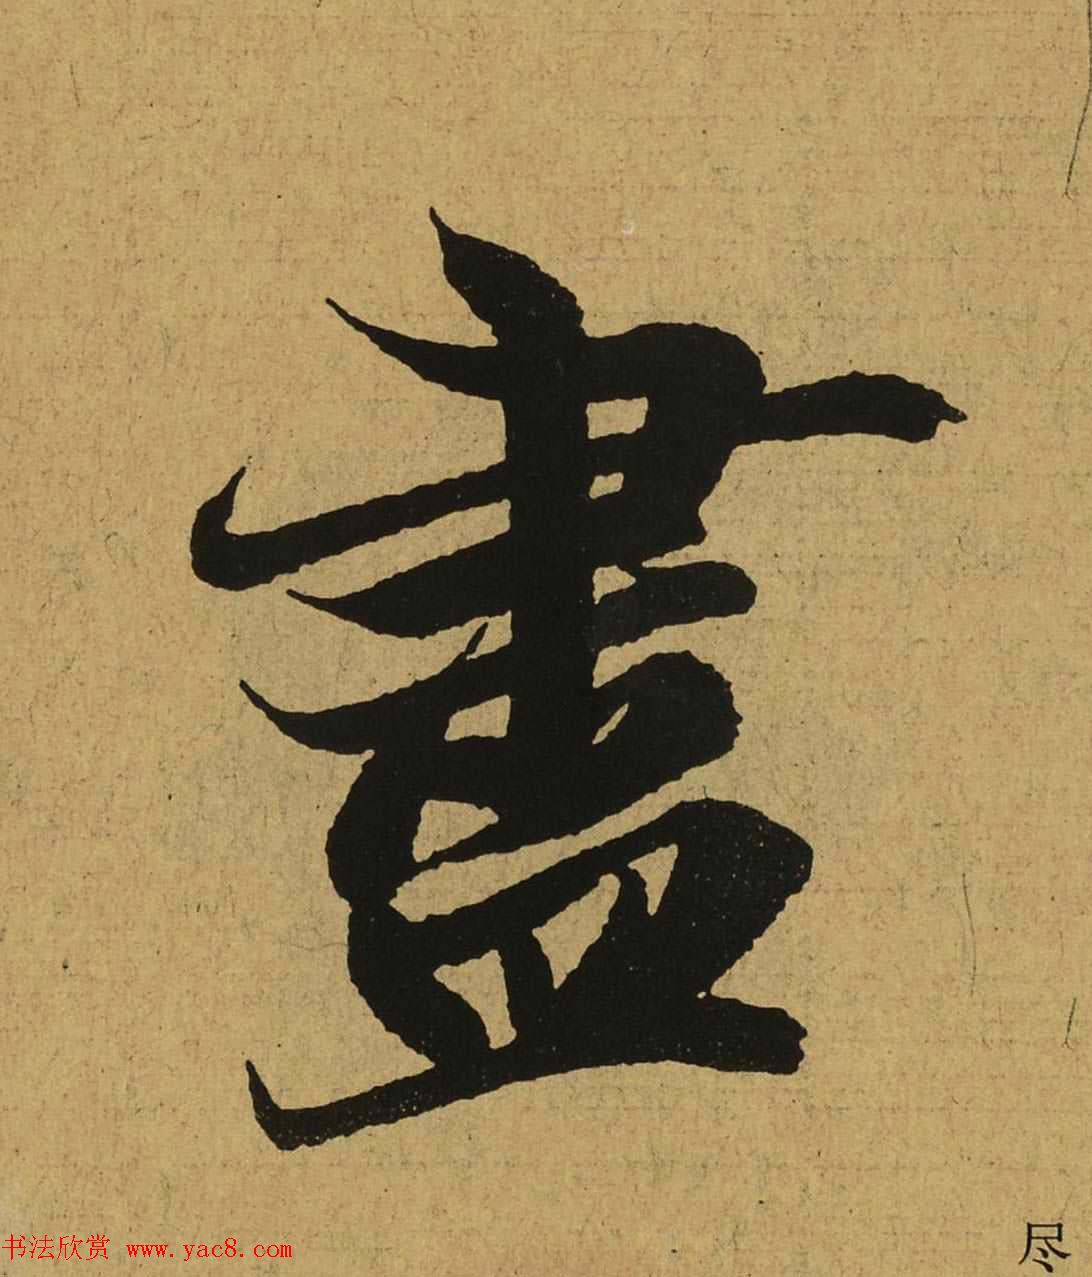 盡
书法欣赏 www.yac8.com
尽